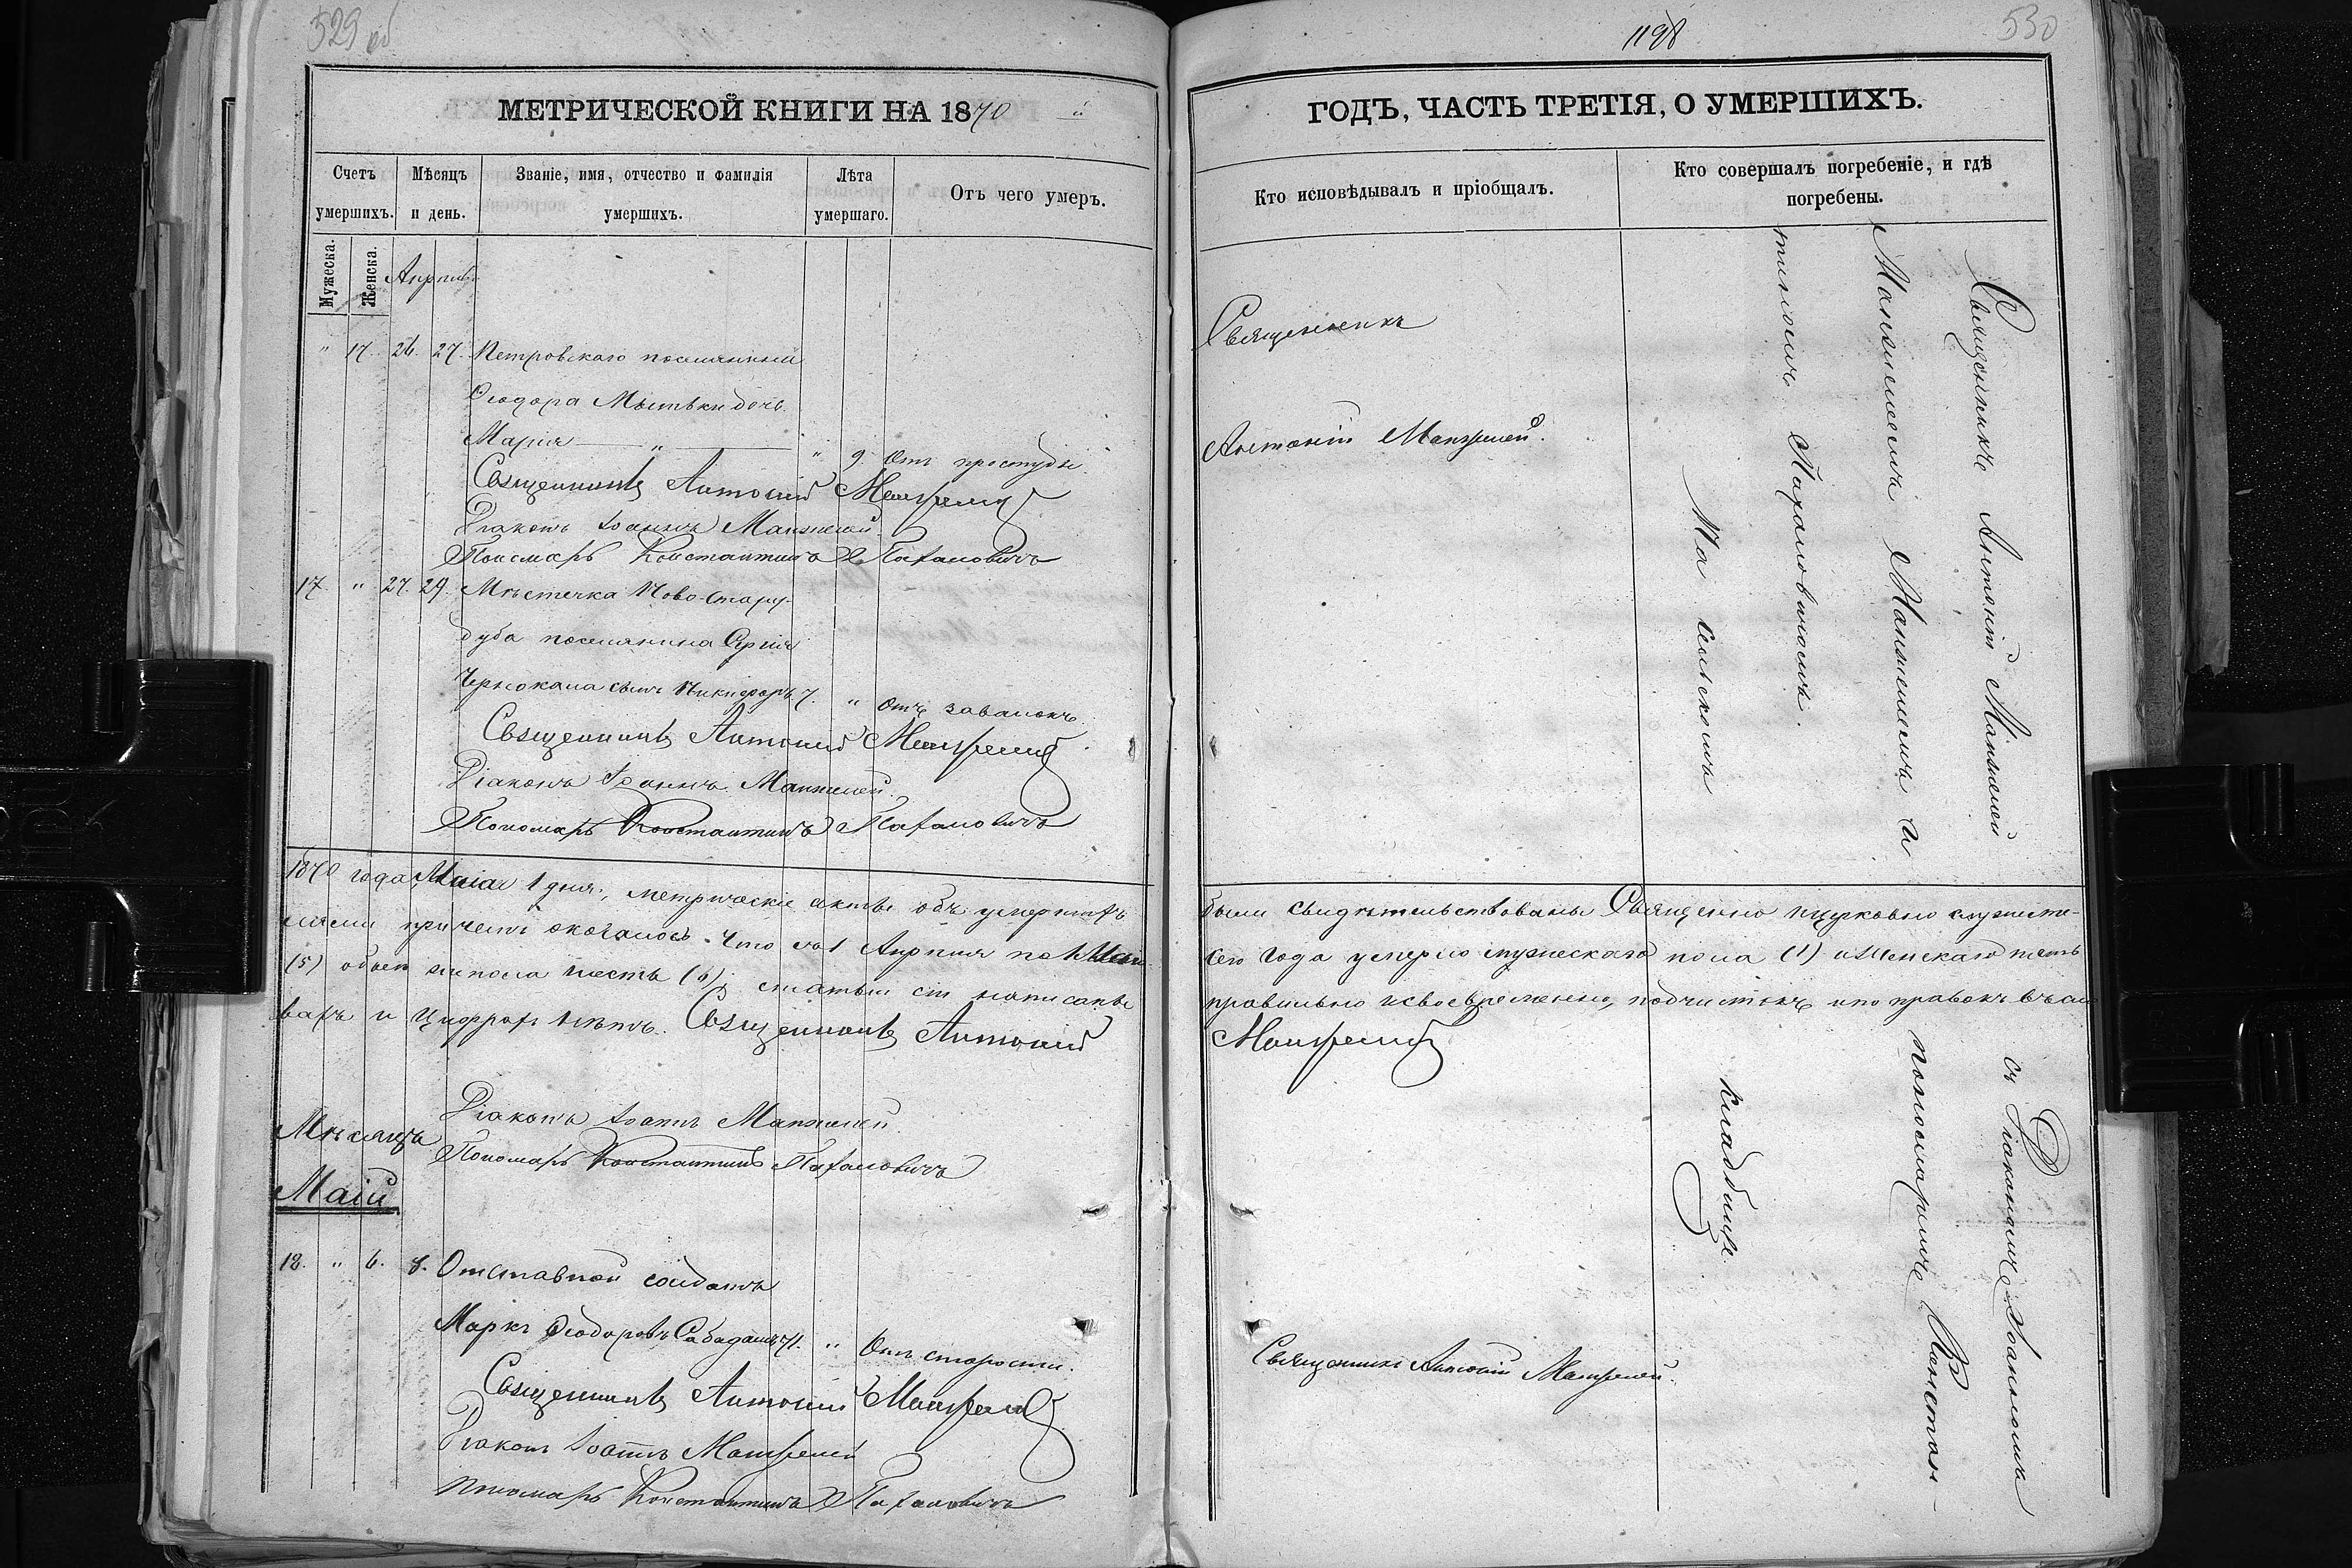 529 об
МЕТРИЧЕСКОЙ КНИГИ НА 1870
Счетъ умершихъ.
Мѣсяцъ и день.
Званіе, имя, отчество и фамилія умершихъ.
Лѣта умершаго.
Отъ чего умеръ.
Мужеска.
Женска.
Апрель
" 17. 26. 27. Петровскаго поселянина
Ѳеодора дочь
Марія — " — " 9. Отъ простуды
Священникъ Антоній Манжелей
Діаконъ Іоаннъ Манжелей
Пономарь Константинъ Пахаловичъ
17 " 27. 29. Мѣстечка Ново-Стару-
дуба поселянина Сергія
сынъ Никифоръ 7. " Отъ
Священникъ Антоній Манжелей
Діаконъ Іоаннъ Манжелей
Пономарь Константинъ Пахаловичъ
1870 года, Маія 1 дня, метрическіе акты объ умершихъ
лями причемъ оказалось: что съ 1 Апреля по 1 Маія
(5) обоего пола шесть (6), статьи сіи написаны
вахъ и цифрахъ нѣтъ. Священникъ Антоній
Діаконъ Іоаннъ Манжелей
Пономарь Константинъ Пахаловичъ
Мѣсяцъ
Маій
18. " 6. 8. Отставной солдатъ
Маркъ Ѳеодоровъ 71. " Отъ старости.
Священникъ Антоній Манжелей
Діаконъ Іоаннъ Манжелей
Пономарь Константинъ Пахаловичъ
1198
530
ГОДЪ, ЧАСТЬ ТРЕТІЯ, О УМЕРШИХЪ.
Кто исповѣдывалъ и пріобщалъ.
Кто совершалъ погребеніе, и гдѣ
погребены.
Священникъ
Антоній Манжелей.
Священникъ Антоній Манжелей
съ Діакономъ Іоанномъ
Манжелеемъ и
пономаремъ Констан-
тиномъ Пахаловичемъ.
На сельскомъ
кладбищѣ
были свидѣтельствованы Священно и церковно служите-
сего года умерло мужескаго пола (1) и женскаго пять
правильно и своевременно, подчистокъ и по правокъ въ сло
Манжелей
Священникъ Антоній Манжелей.